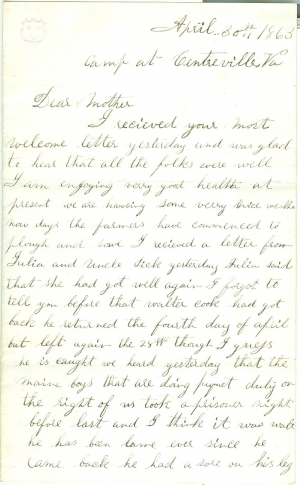 April 30th 1863
Camp at Centreville, Va
Dear Mother
I recieved your most
welcome letter yesterday and was glad
to hear that all the folks were well
I am enjoying verry good health at
present we are haveing some verry nice
now days the farmers have commenced to
plough and sow I recieved a letter from
Julia and Uncle Dick yesterday Julia said
that she had got well again I forgot to
tell you before that walter cook had got
back he returned the fourth day of april
but left again the 28th though I guess
he is caught we heard yesterday that the
maine boys that are doing duty on
the right of us took a prisoner night
before last and I think it was
he has been lame ever since he
came back he had a sore on his leg